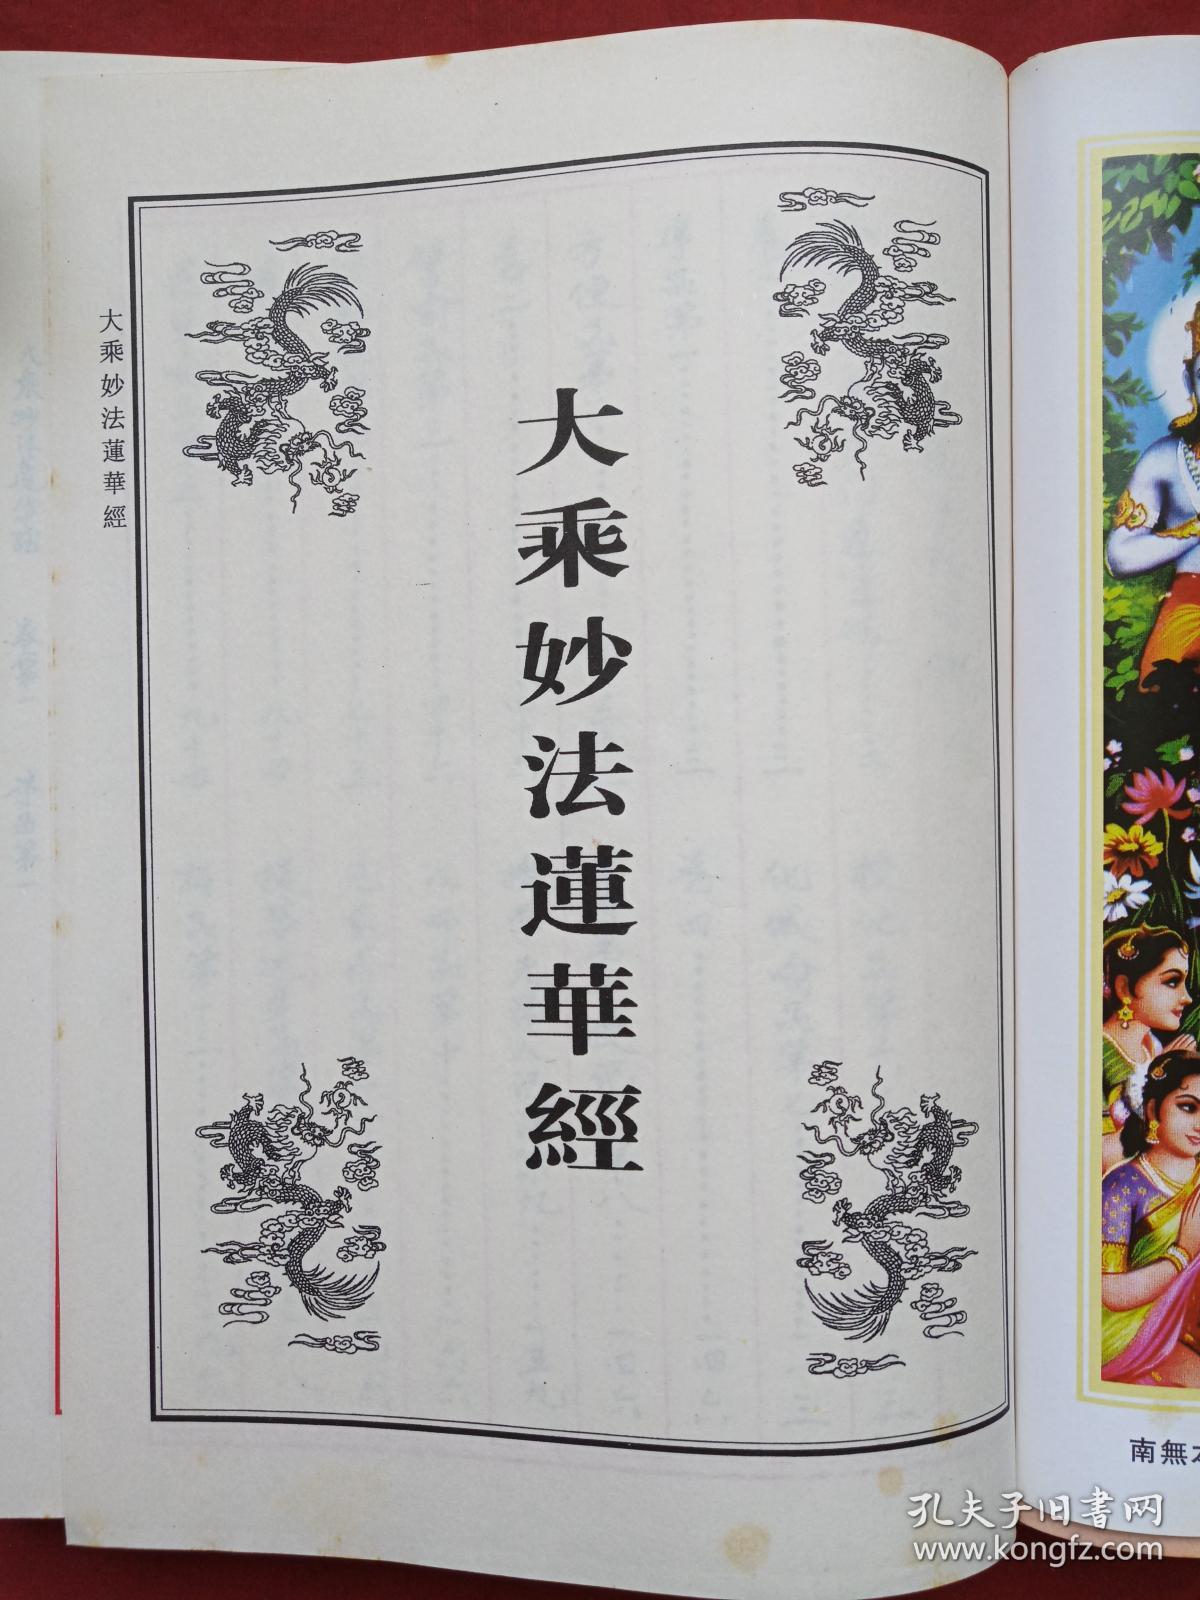 大乘妙法蓮華經
大乘妙法蓮華經
南無本
孔夫子旧書网
www.kongfz.com